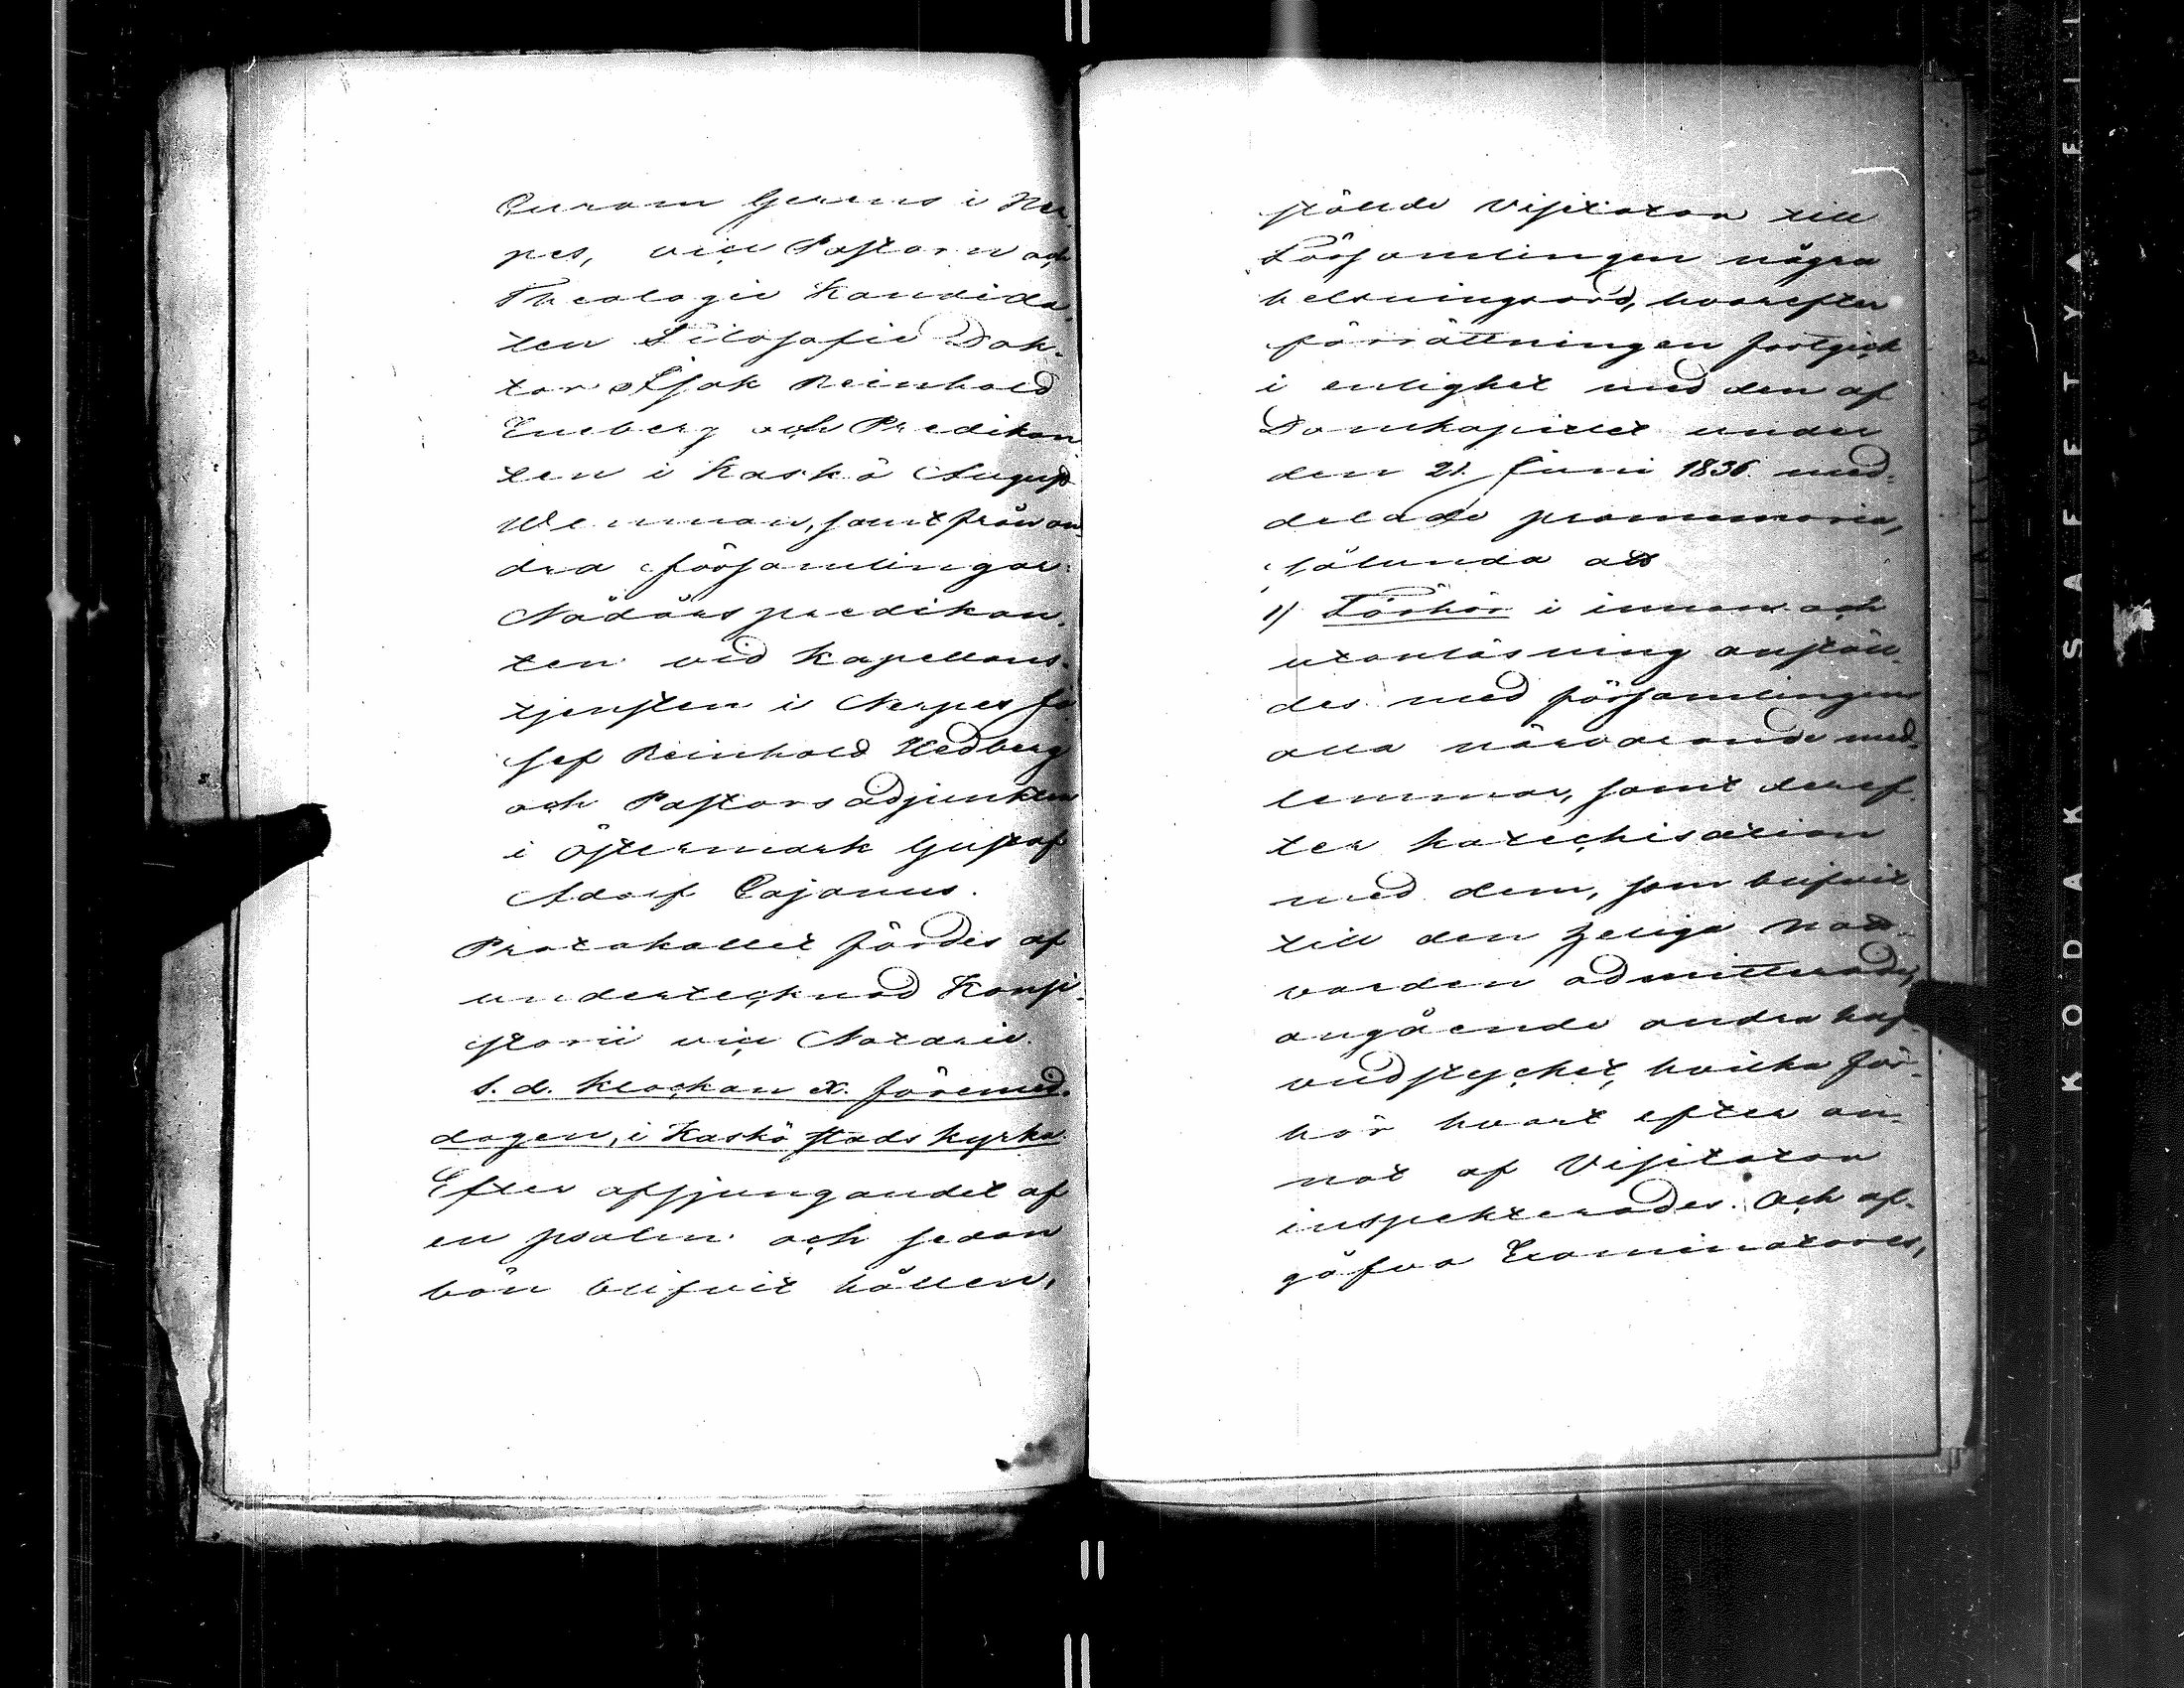 Curam Gerens i Ner-
pes, vice Pastorn och
Theologie Kandida-
ten Filosofie Dok-
tor Isak Reinhold
Eneberg och Predikan
ten i Kaskö August
Wenman, samt från an-
dra församlingar:
Nådårspredikan-
ten vid Kapellans-
tjensten i Nerpes Jo
sef Reinhold Hedberg
och Pastorsadjunkten
i Östermark Gustaf
Adolf Cajanus.
Protokollet fördes af
undertecknad Konsi-
storii vice Notarie.
S. d. klockan X. föremid-
dagen, i Kaskö stads kyrka.
Efter afsjungandet af
en psalm och sedan
bön blifvit hållen,
stälde Visitator till
Församlingen några
helsningsord, hvarefter
förrättningen fortgick
i enlighet med den af
Domkapitlet under
den 21. Juni 1836 med-
delade promemoria,
sålunda att
1) Förhör i innan- och
utanläsning anstäl-
des med församlingens
alla närvarande med-
lemmar, samt deref-
ter katechisation
med dem, som blifvit
till den heliga Natt-
varden admitterade,
angående andra huf-
vudstycket, hvilka för-
hör hvart efter an-
nat af Visitator
inspekterades. Och af-
gåfvo Examinatores,
KODAK SAFETY A FIL